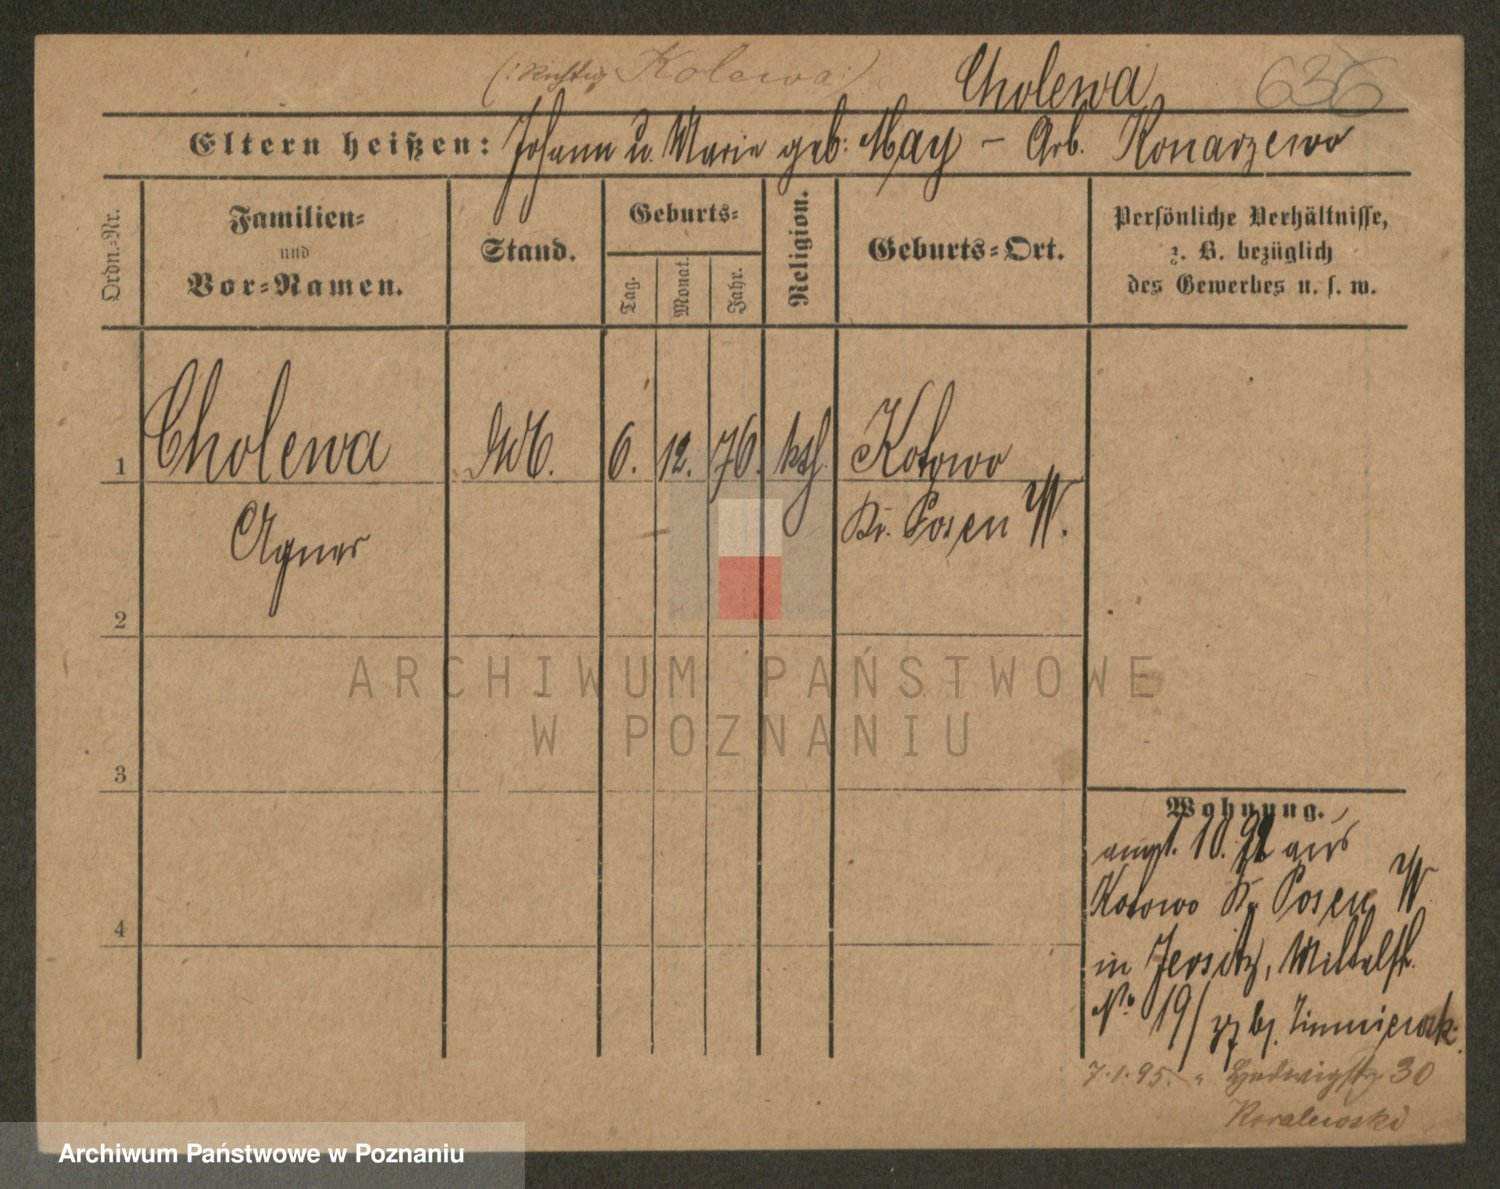 (: Richtig Kolewa :)
Cholewa
636
Eltern heißen: Johann u. Marie geb: May – Arb. Konarzewo
Ordn.-Nr.
Familien-
und
Vor-Namen.
Stand.
Geburts-
Tag.
Monat.
Jahr.
Religion.
Geburts-Ort.
Persönliche Verhältnisse,
z. B. bezüglich
des Gewerbes u. s. w.
1 Cholewa 6. 12. 76. kth. Kotowo
Agnes Kr. Posen W.
2
3
4
Wohnung.
10. 92 aus
Kotowo Kr Posen W
in Jersitz, Mittelstr.
No 19/ bj.
7.1.95. " Hedwigstr 30
Kowalewski
ARCHIWUM PAŃSTWOWE
W POZNANIU
Archiwum Państwowe w Poznaniu